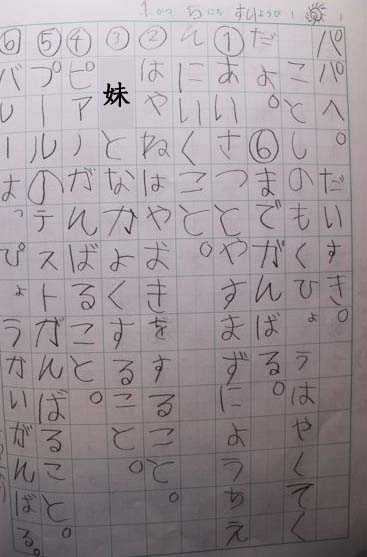 1がつ5にちすいようび
パパへ。だいすき。
ことしのもくひょうはやくてく
だよ。⑥までがんばる。
①あいさつとやすまずにようちえ
んにいくこと。
②はやねはやおきをすること。
③妹となかよくすること。
④ピアノがんばること。
⑤プールのテストがんばること。
⑥バレーはっぴょうかいがんばる。